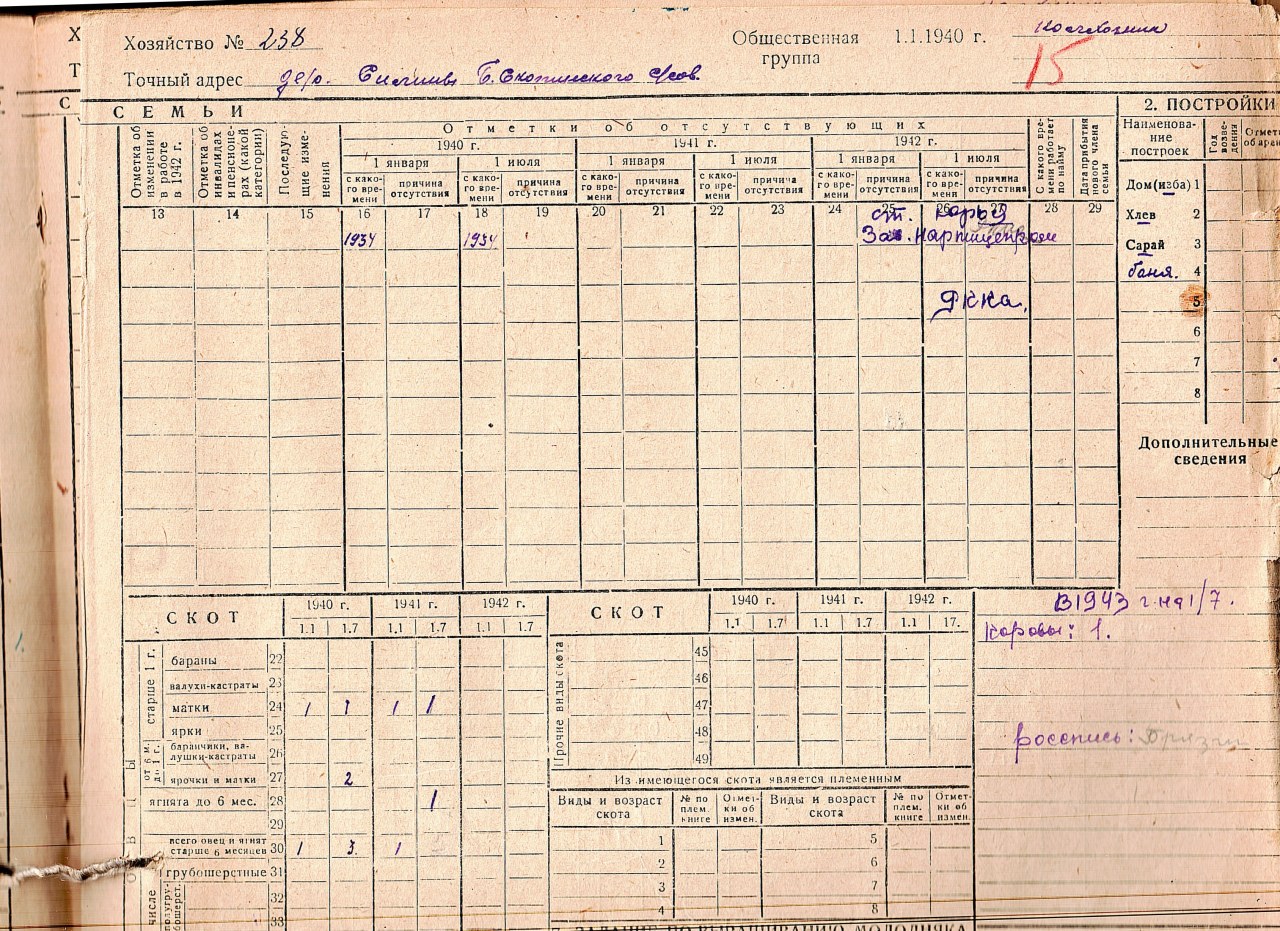 Х
Т
С
Хозяйство № 238
Общественная группа 1.1.1940 г. колхозник
15
Точный адрес дер. Б. Скопинского с/сов.
СЕМЬИ
Отметка об изменении в работе в 1942 г.
Отметка об инвалидах и пенсионерах (какой категории)
Последующие изменения
Отметки об отсутствующих
1940 г. 1941 г. 1942 г.
1 января 1 июля 1 января 1 июля 1 января 1 июля
с како-го вре-мени причина отсутствия с како-го вре-мени причина отсутствия с како-го вре-мени причина отсутствия с како-го вре-мени причина отсутствия с како-го вре-мени причина отсутствия с како-го вре-мени причина отсутствия
С какого вре-мени работает по найму
Дата прибытия нового члена семьи
13 14 15 16 17 18 19 20 21 22 23 24 25 26 27 28 29
ст.
1934 1934 Зав.
РККА.
2. ПОСТРОЙКИ
Наименова-ние построек
Год возве-дения
Дом (изба) 1
Хлев 2
Сарай 3
баня. 4
5
6
7
8
Дополнительные сведения
СКОТ 1940 г. 1941 г. 1942 г.
1.1 1.7 1.1 1.7 1.1 1.7
старше 1 г.
бараны 22
валухи-кастраты 23
матки 24 1 1 1 1
ярки 25
от 6 м. до 1 г.
баранчики, ва-лушки-кастраты 26
ярочки и матки 27 2
ягнята до 6 мес. 28 1
29
всего овец и ягнят старше 6 месяцев 30 1 3 1
грубошерстные 31
32
33
числе
полугру-бошерст.
СКОТ 1940 г. 1941 г. 1942 г.
1.1 1.7 1.1 1.7 1.1 17.
Прочие виды скота
45
46
47
48
49
Из имеющегося скота является племенным
Виды и возраст скота № по плем. книге Отмет-ки об измен. Виды и возраст скота № по плем. книге Отмет-ки об измен.
1 5
2 6
3 7
4 8
В 1943 г. на 1/7.
Коровы: 1.
росспись:
ЗАДАНИЕ ПО ВЫРАЩИВАНИЮ МОЛОДНЯКА